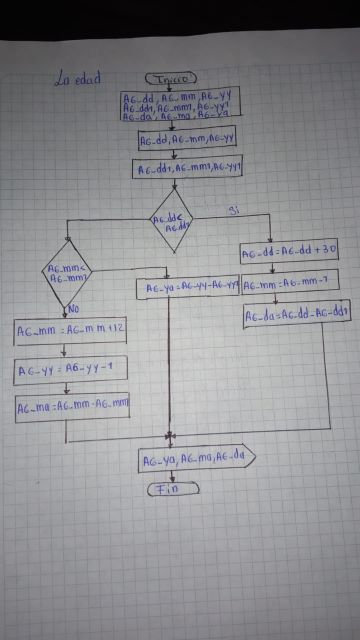 La edad
Inicio
AG_dd, AG_mm, AG_yy
AG_dd1, AG_mm1, AG_yy1
AG_da, AG_ma, AG_ya
AG_dd, AG_mm, AG_yy
AG_dd1, AG_mm1, AG_yy1
AG_dd<
AG_dd1
Si
AG_mm<
AG_mm1
No
AG_dd=AG_dd+30
AG_ya=AG_yy-AG_yy1
AG_mm=AG_mm-1
AG_mm=AG_mm+12
AG_da=AG_dd-AG_dd1
AG_yy=AG_yy-1
AG_ma=AG_mm-AG_mm1
AG_ya, AG_ma, AG_da
Fin